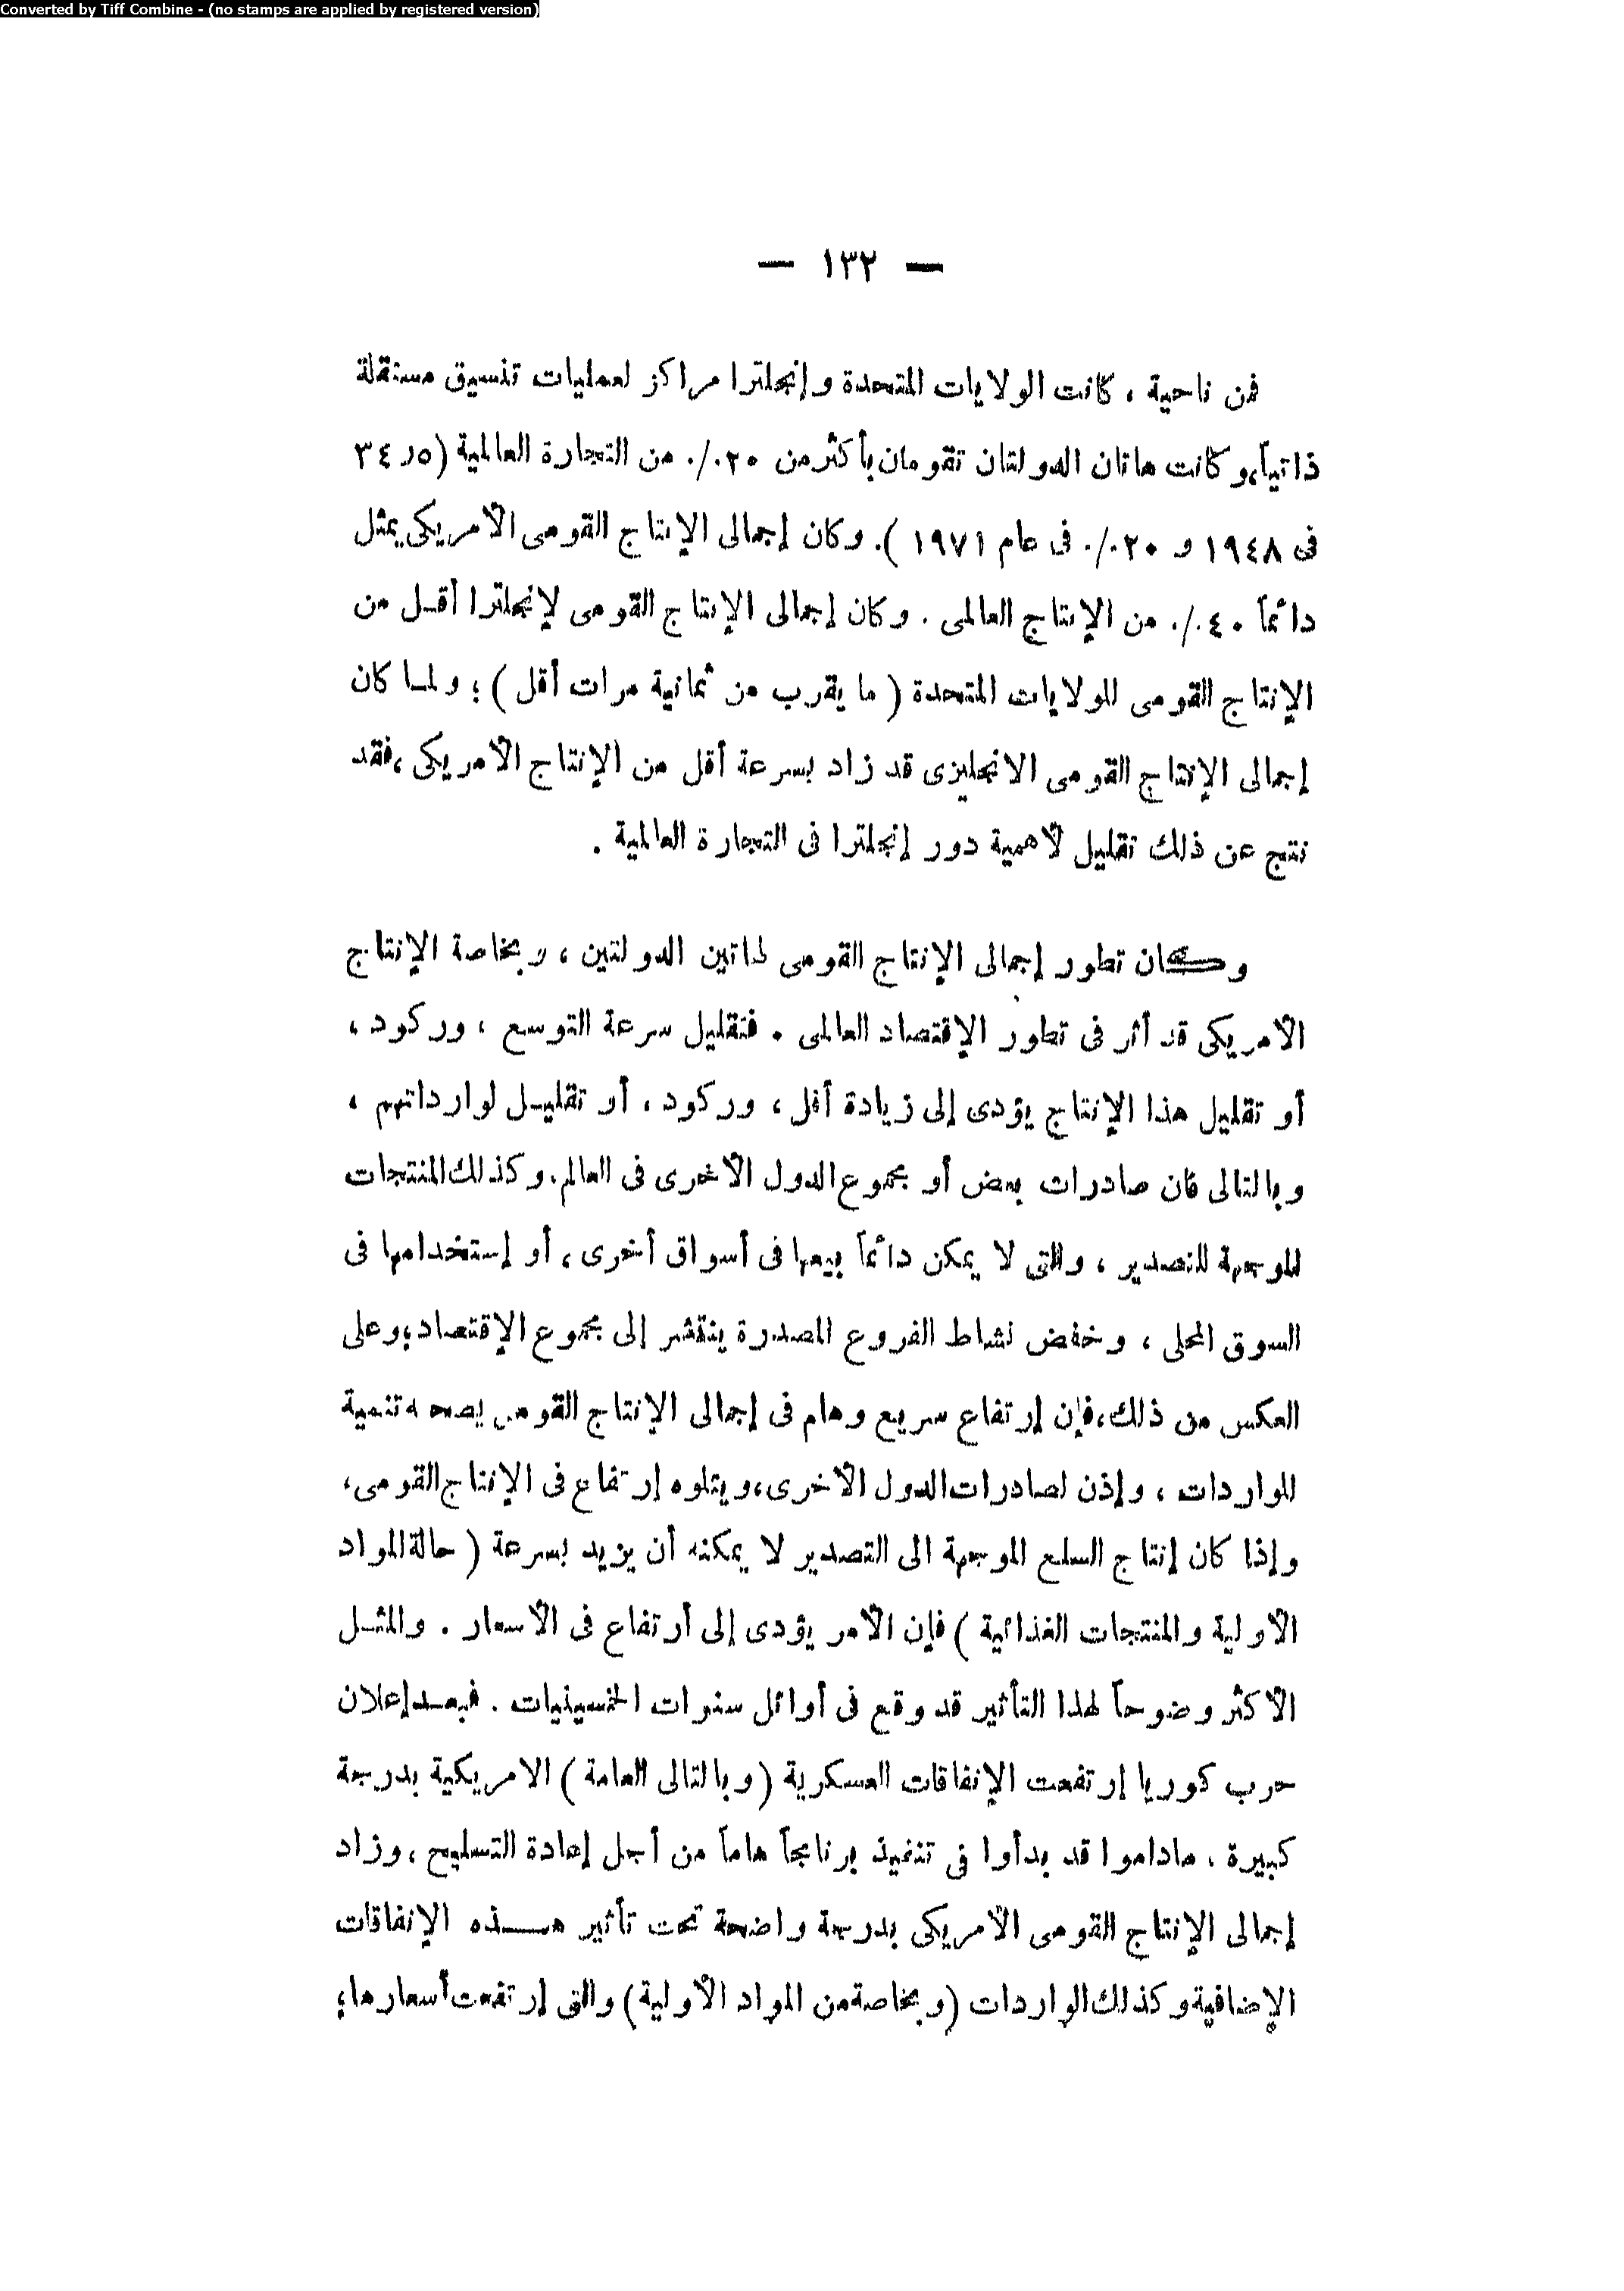 Converted by Tiff Combine - (no stamps are applied by registered version)
— ١٣٢ —
فمن ناحية ، كانت الولايات المتحدة وإنجلترا مراكز لعمليات تنسيق مستقلة
ذاتياً، وكانت هاتان الدولتان تقومان بأكثر من ٢٠ ٪ من التجارة العالمية (٥ر٣٤
فى ١٩٤٨ و ٢٠ ٪ فى عام ١٩٧١ ). وكان إجمالى الإنتاج القومى الأمريكى يمثل
دائماً ٤٠ ٪ من الإنتاج العالمى . وكان إجمالى الإنتاج القومى لإنجلترا أقــل من
الإنتاج القومى للولايات المتحدة ( ما يقرب من ثمانية مرات أقل ) ؛ ولمــا كان
إجمالى الإنتاج القومى الانجليزى قد زاد بسرعة أقل من الإنتاج الأمريكى ، فقد
نتج عن ذلك تقليل لأهمية دور إنجلترا فى التجارة العالمية .
وكــان تطور إجمالى الإنتاج القومى لهاتين الدولتين ، وبخاصة الإنتاج
الأمريكى قد أثر فى تطور الإقتصاد العالمى . فتقليل سرعة التوسع ، وركود ،
أو تقليل هذا الإنتاج يؤدى إلى زيادة أقل ، وركود ، أو تقليــل لوارداتهم ،
وبالتالى فان صادرات بعض أو مجموع الدول الأخرى فى العالم. وكذلك المنتجات
الموجهة للتصدير ، والتى لا يمكن دائماً بيعها فى أسواق أخرى ، أو إستخدامها فى
السوق المحلى ، وخفض نشاط الفروع المصدرة ينتشر إلى مجموع الإقتصاد ؛ وعلى
العكس من ذلك، فإن إرتفاع سريع وهام فى إجمالى الإنتاج القومى يصحبه تنمية
للواردات ، وإذن لصادرات الدول الأخرى، ويتلوه إرتفاع فى الإنتاج القومى،
وإذا كان إنتاج السلع الموجهة الى التصدير لا يمكنه أن يزيد بسرعة ( حالة المواد
الأولية والمنتجات الغذائية ) فإن الأمر يؤدى إلى أرتفاع فى الأسعار . والمثــل
الأكثر وضوحاً لهذا التأثير قد وقع فى أوائل سنوات الخمسينيات . فبعــد إعلان
حرب كوريا إرتفعت الإنفاقات العسكرية ( وبالتالى العامة ) الامريكية بدرجة
كبيرة ، ماداموا قد بدأوا فى تنفيذ برنامجاً هاماً من أجل إعادة التسليح ، وزاد
إجمالى الإنتاج القومى الأمريكى بدرجة واضحة تحت تأثير هــــذه الإنفاقات
الإضافية وكذلك الواردات (وبخاصة من المواد الأولية) والتى إرتفعت أسعارها ؛